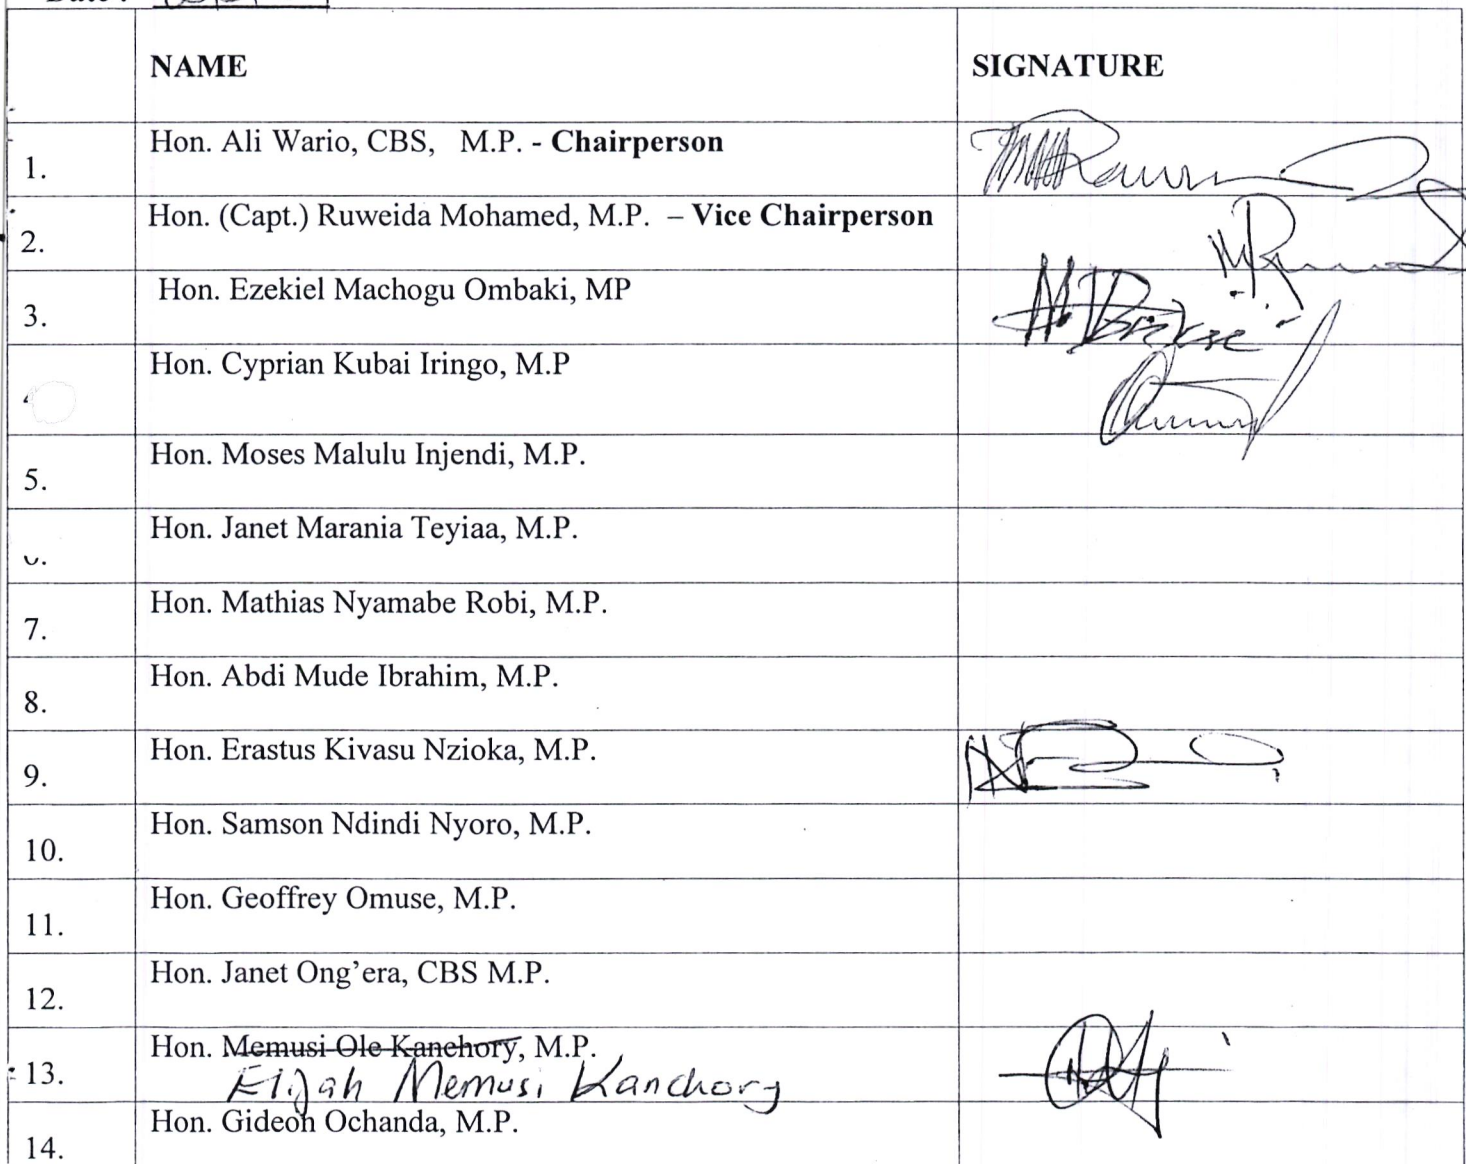 NAME SIGNATURE
1. Hon. Ali Wario, CBS, M.P. - Chairperson
2. Hon. (Capt.) Ruweida Mohamed, M.P. – Vice Chairperson
3. Hon. Ezekiel Machogu Ombaki, MP
Hon. Cyprian Kubai Iringo, M.P
5. Hon. Moses Malulu Injendi, M.P.
Hon. Janet Marania Teyiaa, M.P.
7. Hon. Mathias Nyamabe Robi, M.P.
8. Hon. Abdi Mude Ibrahim, M.P.
9. Hon. Erastus Kivasu Nzioka, M.P.
10. Hon. Samson Ndindi Nyoro, M.P.
11. Hon. Geoffrey Omuse, M.P.
12. Hon. Janet Ong’era, CBS M.P.
13. Hon. Memusi Ole Kanchory, M.P.
Elijah Memusi Kanchory
14. Hon. Gideon Ochanda, M.P.